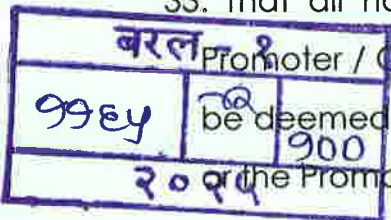 That all
बरल - १
Promoter /
११६५
be deemed
१००
२०१५
or the Promo